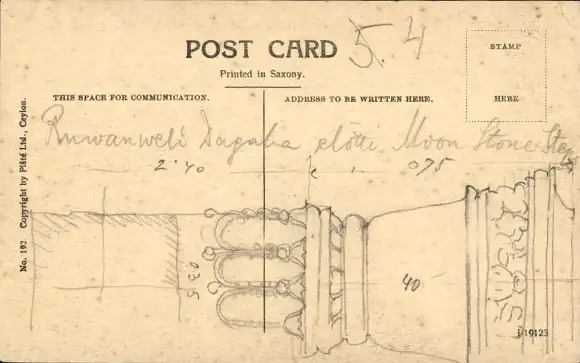 POST CARD
5.4
Printed in Saxony.
STAMP
HERE
THIS SPACE FOR COMMUNICATION.
ADDRESS TO BE WRITTEN HERE.
Ruwanweli Dagaba előtti Moon Stone Step
2.40
075
035
40
J 19123
No. 192 Copyright by Plâté Ltd., Ceylon.